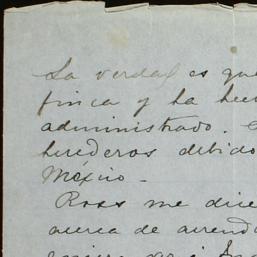 La verdad es que
finca y ha hec
administrado.
herederos debido
México -
Ross me dice
acerca de arrend